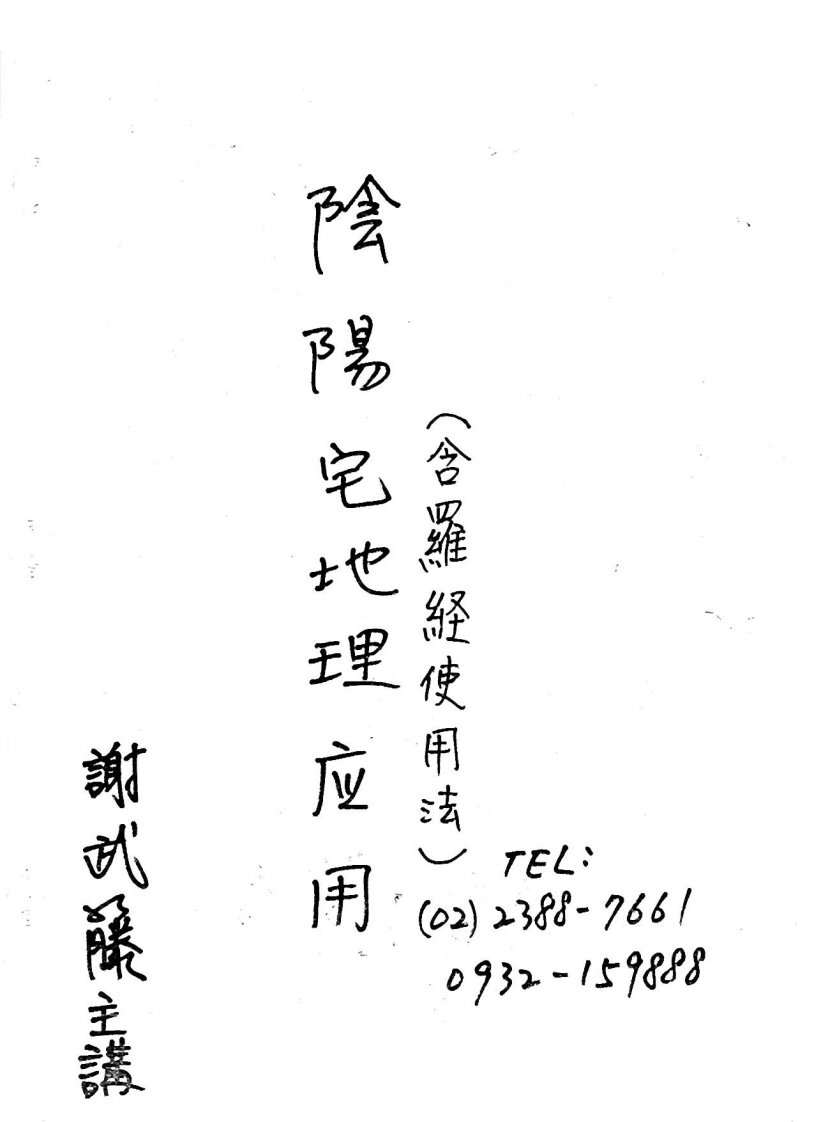 陰陽宅地理应用
(含羅経使用法)
TEL:
(02) 2388-7661
0932-159888
謝武藤主講